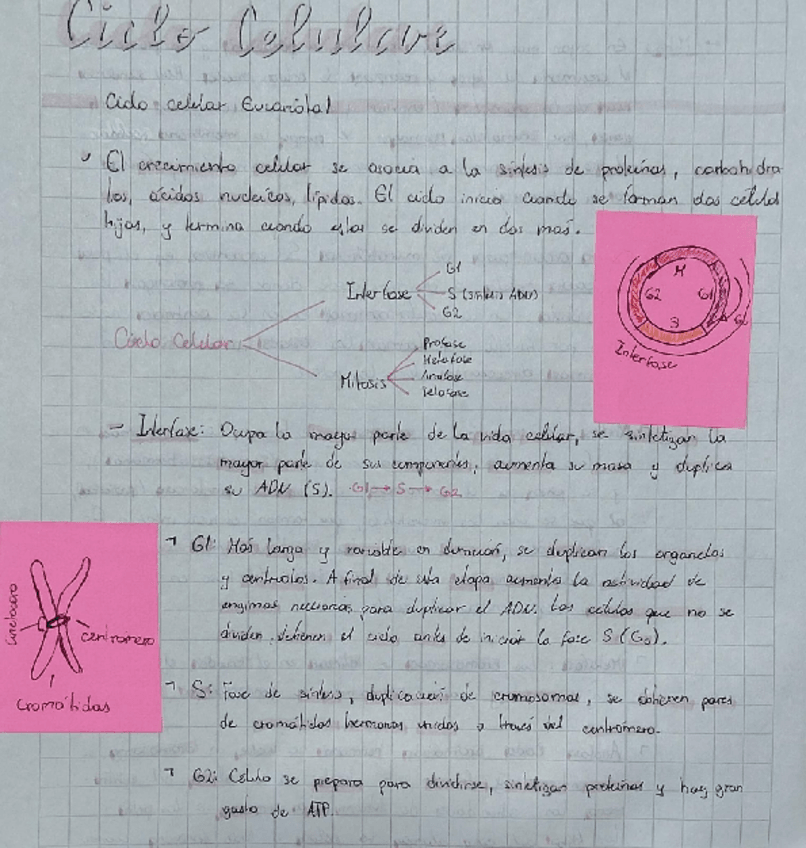 Ciclo Celular
Ciclo celular Eucariota
El crecimiento celular se asocia a la síntesis de proteínas, carbohidra
tos, ácidos nucleicos, lípidos. El ciclo inicia cuando se forman dos células
hijas, y termina cuando estas se dividen en dos mas.
Ciclo Celular
Interfase
G1
S (síntesis ADN)
G2
Mitosis
Profase
Metafase
Anafase
Telofase
M
G2
G1
S
G0
Interfase
- Interfase: Ocupa la mayor parte de la vida celular, se sintetizan la
mayor parte de sus componentes, aumenta su masa y duplica
su ADN (S). G1 → S → G2
G1: Mas larga y variable en duracion, se duplican los organelos
y centriolos. A final de esta etapa aumenta la actividad de
enzimas necesarias para duplicar el ADN. Las celulas que no se
dividen detienen el ciclo antes de iniciar la fase S (G0).
cinetocoro
centromero
cromátidas
S: Fase de síntesis, duplicación de cromosomas, se obtienen pares
de cromátidas hermanas unidas a través del centrómero.
G2: Célula se prepara para dividirse, sinetizan proteínas y hay gran
gasto de ATP.